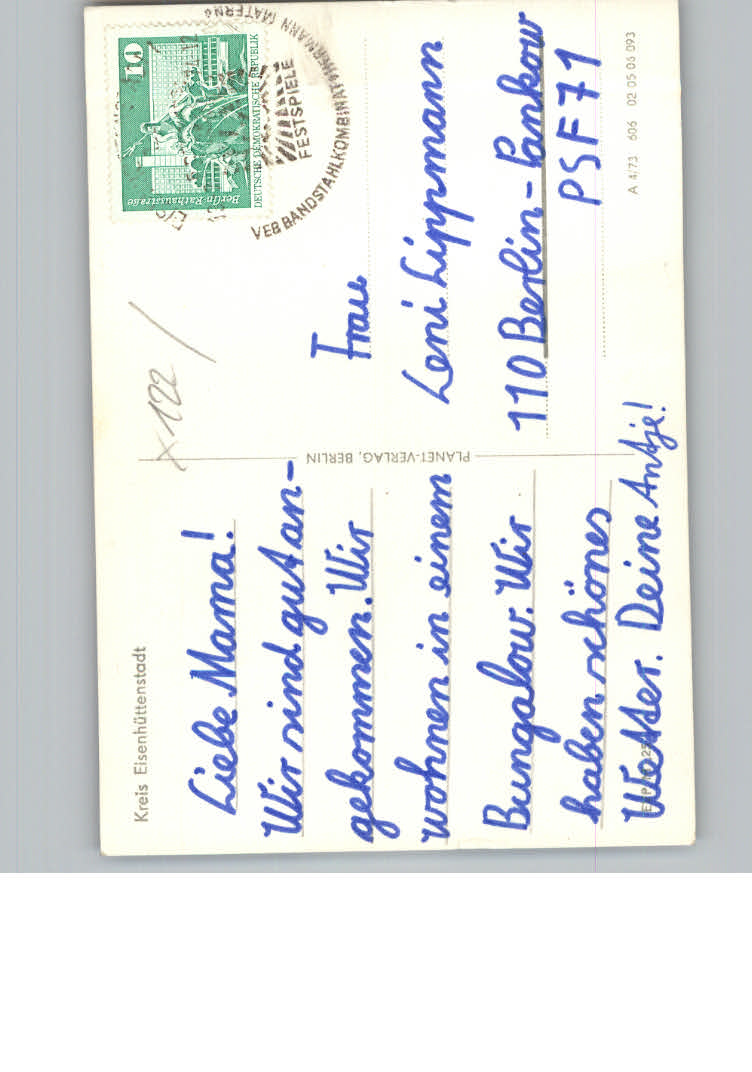 Kreis Eisenhüttenstadt
Liebe Mama!
Wir sind gut an-
gekommen. Wir
wohnen in einem
Bungalow. Wir
haben schönes
Wetter. Deine Antje!
PLANET-VERLAG, BERLIN
x 122 /
10
Berlin-Rathausstraße
DEUTSCHE DEMOKRATISCHE REPUBLIK
FESTSPIELE
VEB BANDSTAHLKOMBINAT HERMANN MATERN
Frau
Leni Lippmann
110 Berlin-Pankow
PSF 71
A 4/73 606 02 05 06 093